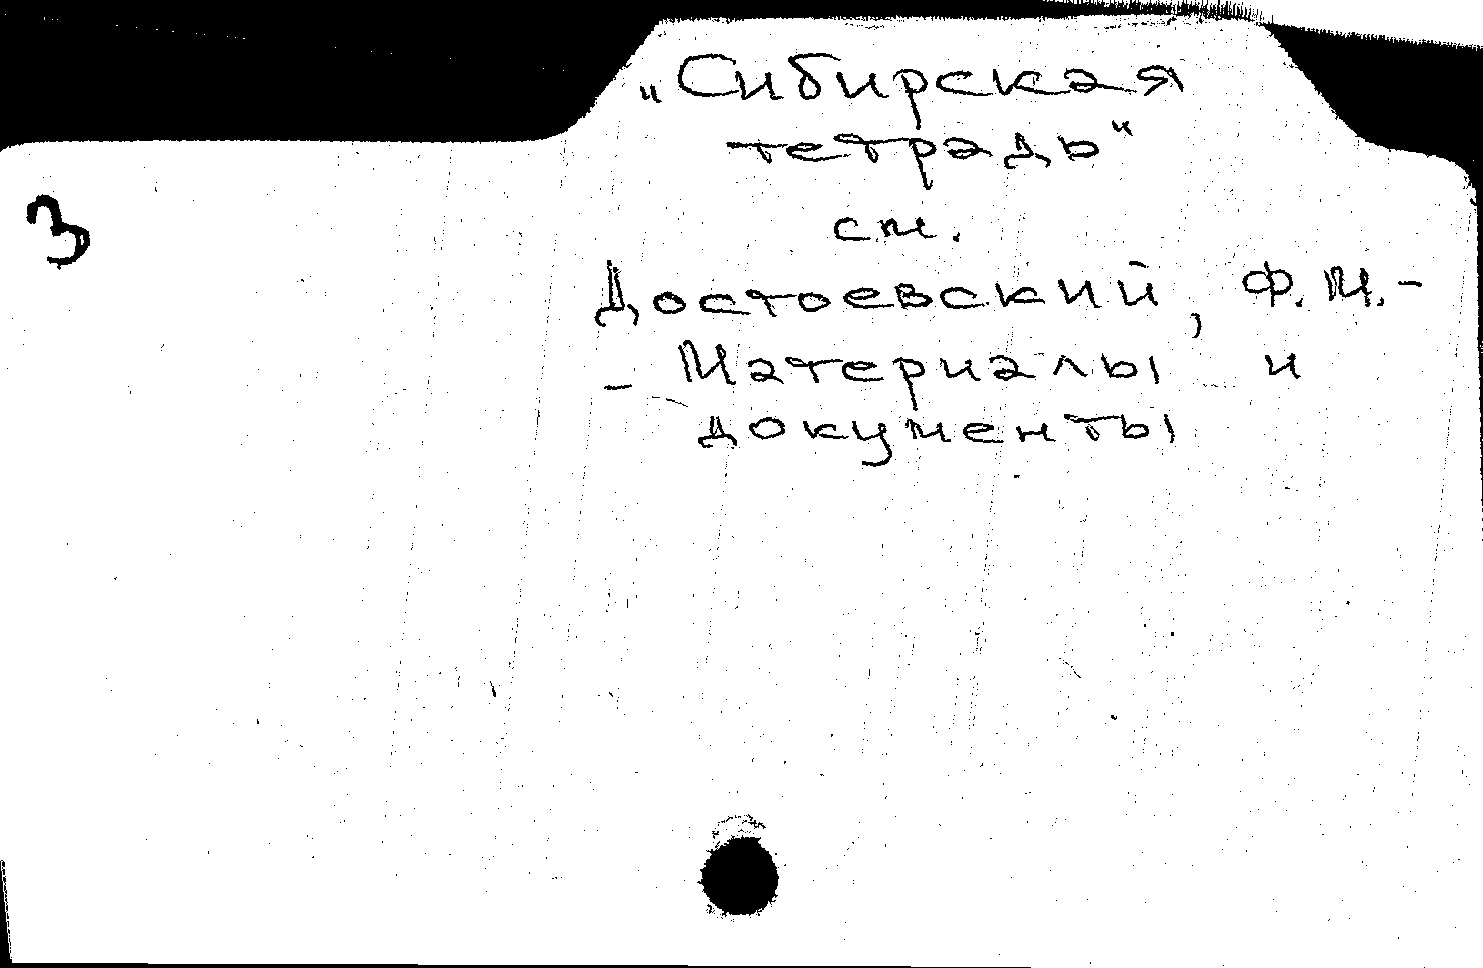 „Сибирская
тетрадь“
см.
3
Достоевский, Ф.М.-
- Материалы и
документы